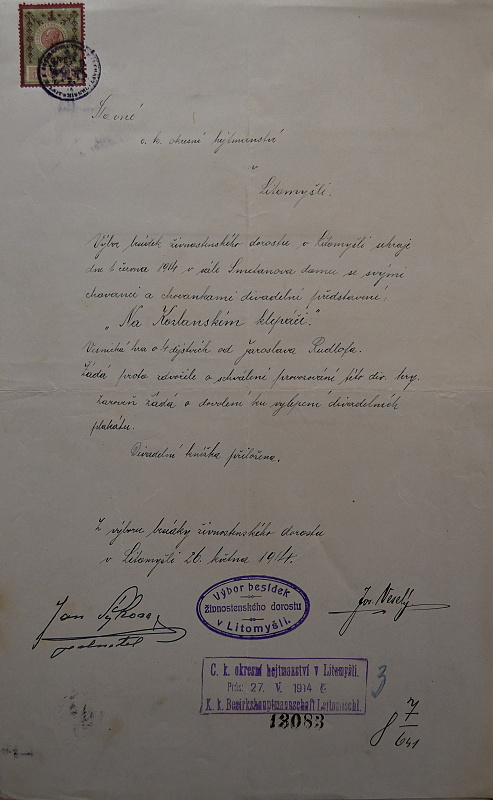 Slavné
c. k. okresní hejtmanství
v
Litomyšli.
Výbor besídek živnostenského dorostu v Litomyšli sehraje
dne 1 června 1914 v sále Smetanova domu se svými
chovanci a chovankami divadelní představení:
„Na Kozlanském klepáči."
Veselohra o 4 dějstvích od Jaroslava Rudlofa.
Žádá proto zdvořile o schválení provozování této div. hry.
Zároveň žádá o dovolení ku vylepení divadelních
plakátů.
Divadelní knížka přiložena.
Z výboru besídky živnostenského dorostu
v Litomyšli 26. května 1914.
Jan Sýkora
Výbor besídek
živnostenského dorostu
v Litomyšli.
Jos. Veselý
C. k. okresní hejtmanství v Litomyšli.
Präs: 27. V. 1914
K. k. Bezirkshauptmannschaft Leitomischl.
3
13083
8 7/641